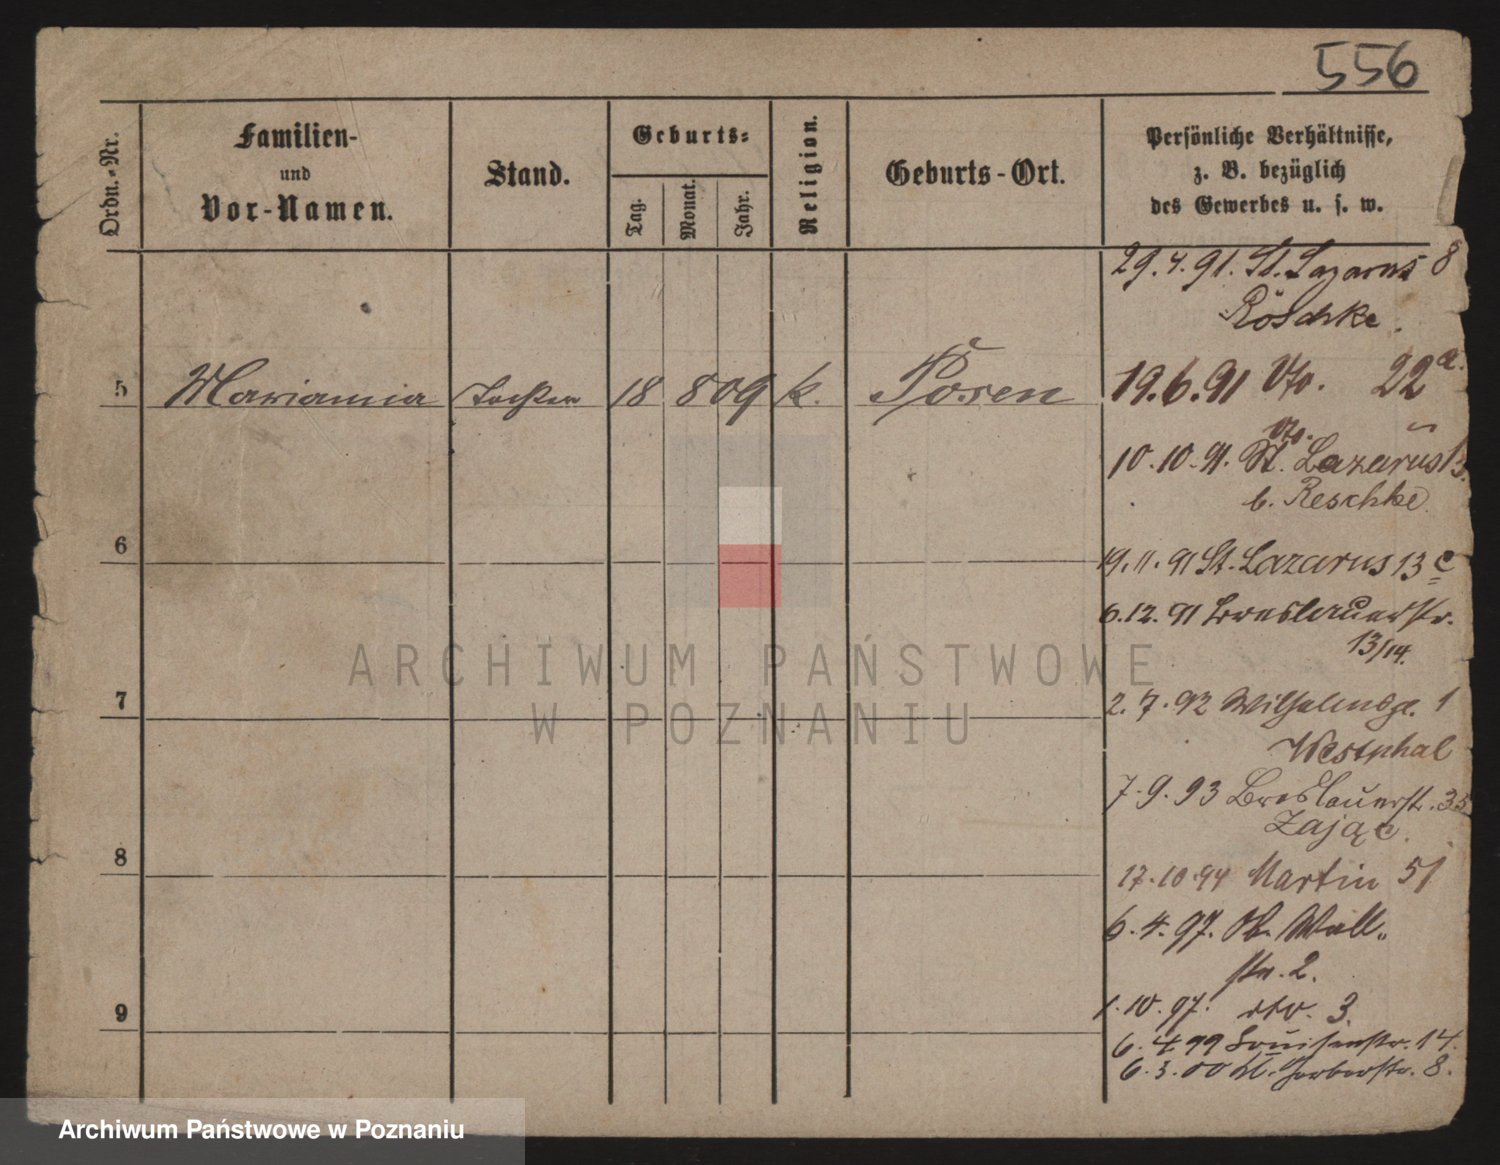 556
Ordn.-Nr.
Familien-
und
Vor-Namen.
Stand.
Geburts-
Tag.
Monat.
Jahr.
Religion.
Geburts-Ort.
Persönliche Verhältnisse,
z. B. bezüglich
des Gewerbes u. s. w.
29.4.91. St. Lazarus 8
Röschke.
5 Marianna Tochter 18 8 09 k. Posen
19.6.91 dto. 22a.
dto.
10.10.91. St. Lazarus 13.
b. Reschke
6
19.11.91 St. Lazarus 13 c
6.12.91 Breslauerstr.
13/14.
7
2.7.92 Wilhelmspl. 1
Westphal
7.9.93 Breslauerstr. 35
Zając.
8
17.10.94 Martin 51
6.4.97. Ob. Wall-
str. 2.
9
1.10.97. dto. 3.
6.4.99 Louisenstr. 14.
6.3.00 Kl. Gerberstr. 8.
ARCHIWUM PAŃSTWOWE
W POZNANIU
Archiwum Państwowe w Poznaniu